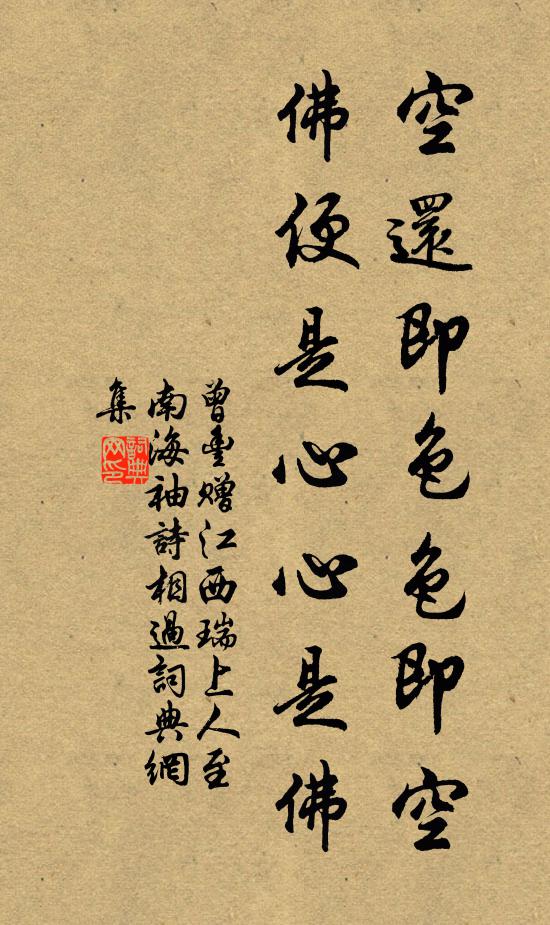 空還即色色即空
佛便是心心是佛
曾豊赠江西瑞上人至
南海袖詩相過詞典網
集
詞典
网印